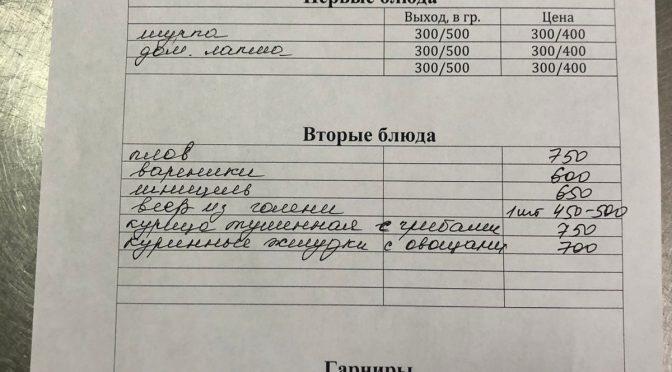 Первые блюда
Выход, в гр. Цена
шурпа 300/500 300/400
дом. лапша 300/500 300/400
300/500 300/400
Вторые блюда
плов 750
вареники 600
шницель 650
веер из голени 1шт 450-500
курица тушенная с грибами 750
куринные желудки с овощами 700
Гарниры